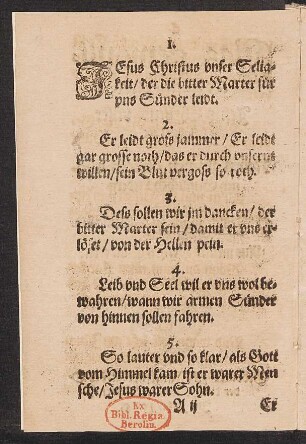 1.
JEsus Christus vnser Selig-
keit/ der die bitter Marter für
vns Sünder leidt.
2.
Er leidt gross jammer/ Er leidt
gar grosse noth/ das er durch vnsern
willen/ sein Blut vergoss so roth.
3.
Dess sollen wir jm dancken/ der
bitter Marter sein/ damit er vns er-
löset/ von der Hellen pein.
4.
Leib vnd Seel wil er vns wol be-
wahren/ wann wir armen Sünder
von hinnen sollen fahren.
5.
So lauter vnd so klar/ als Gott
vom Himmel kam/ ist er warer Men
sche/ Jesus warer Sohn.
A ij Er
Ex
Bibl. Regia
Berolin.